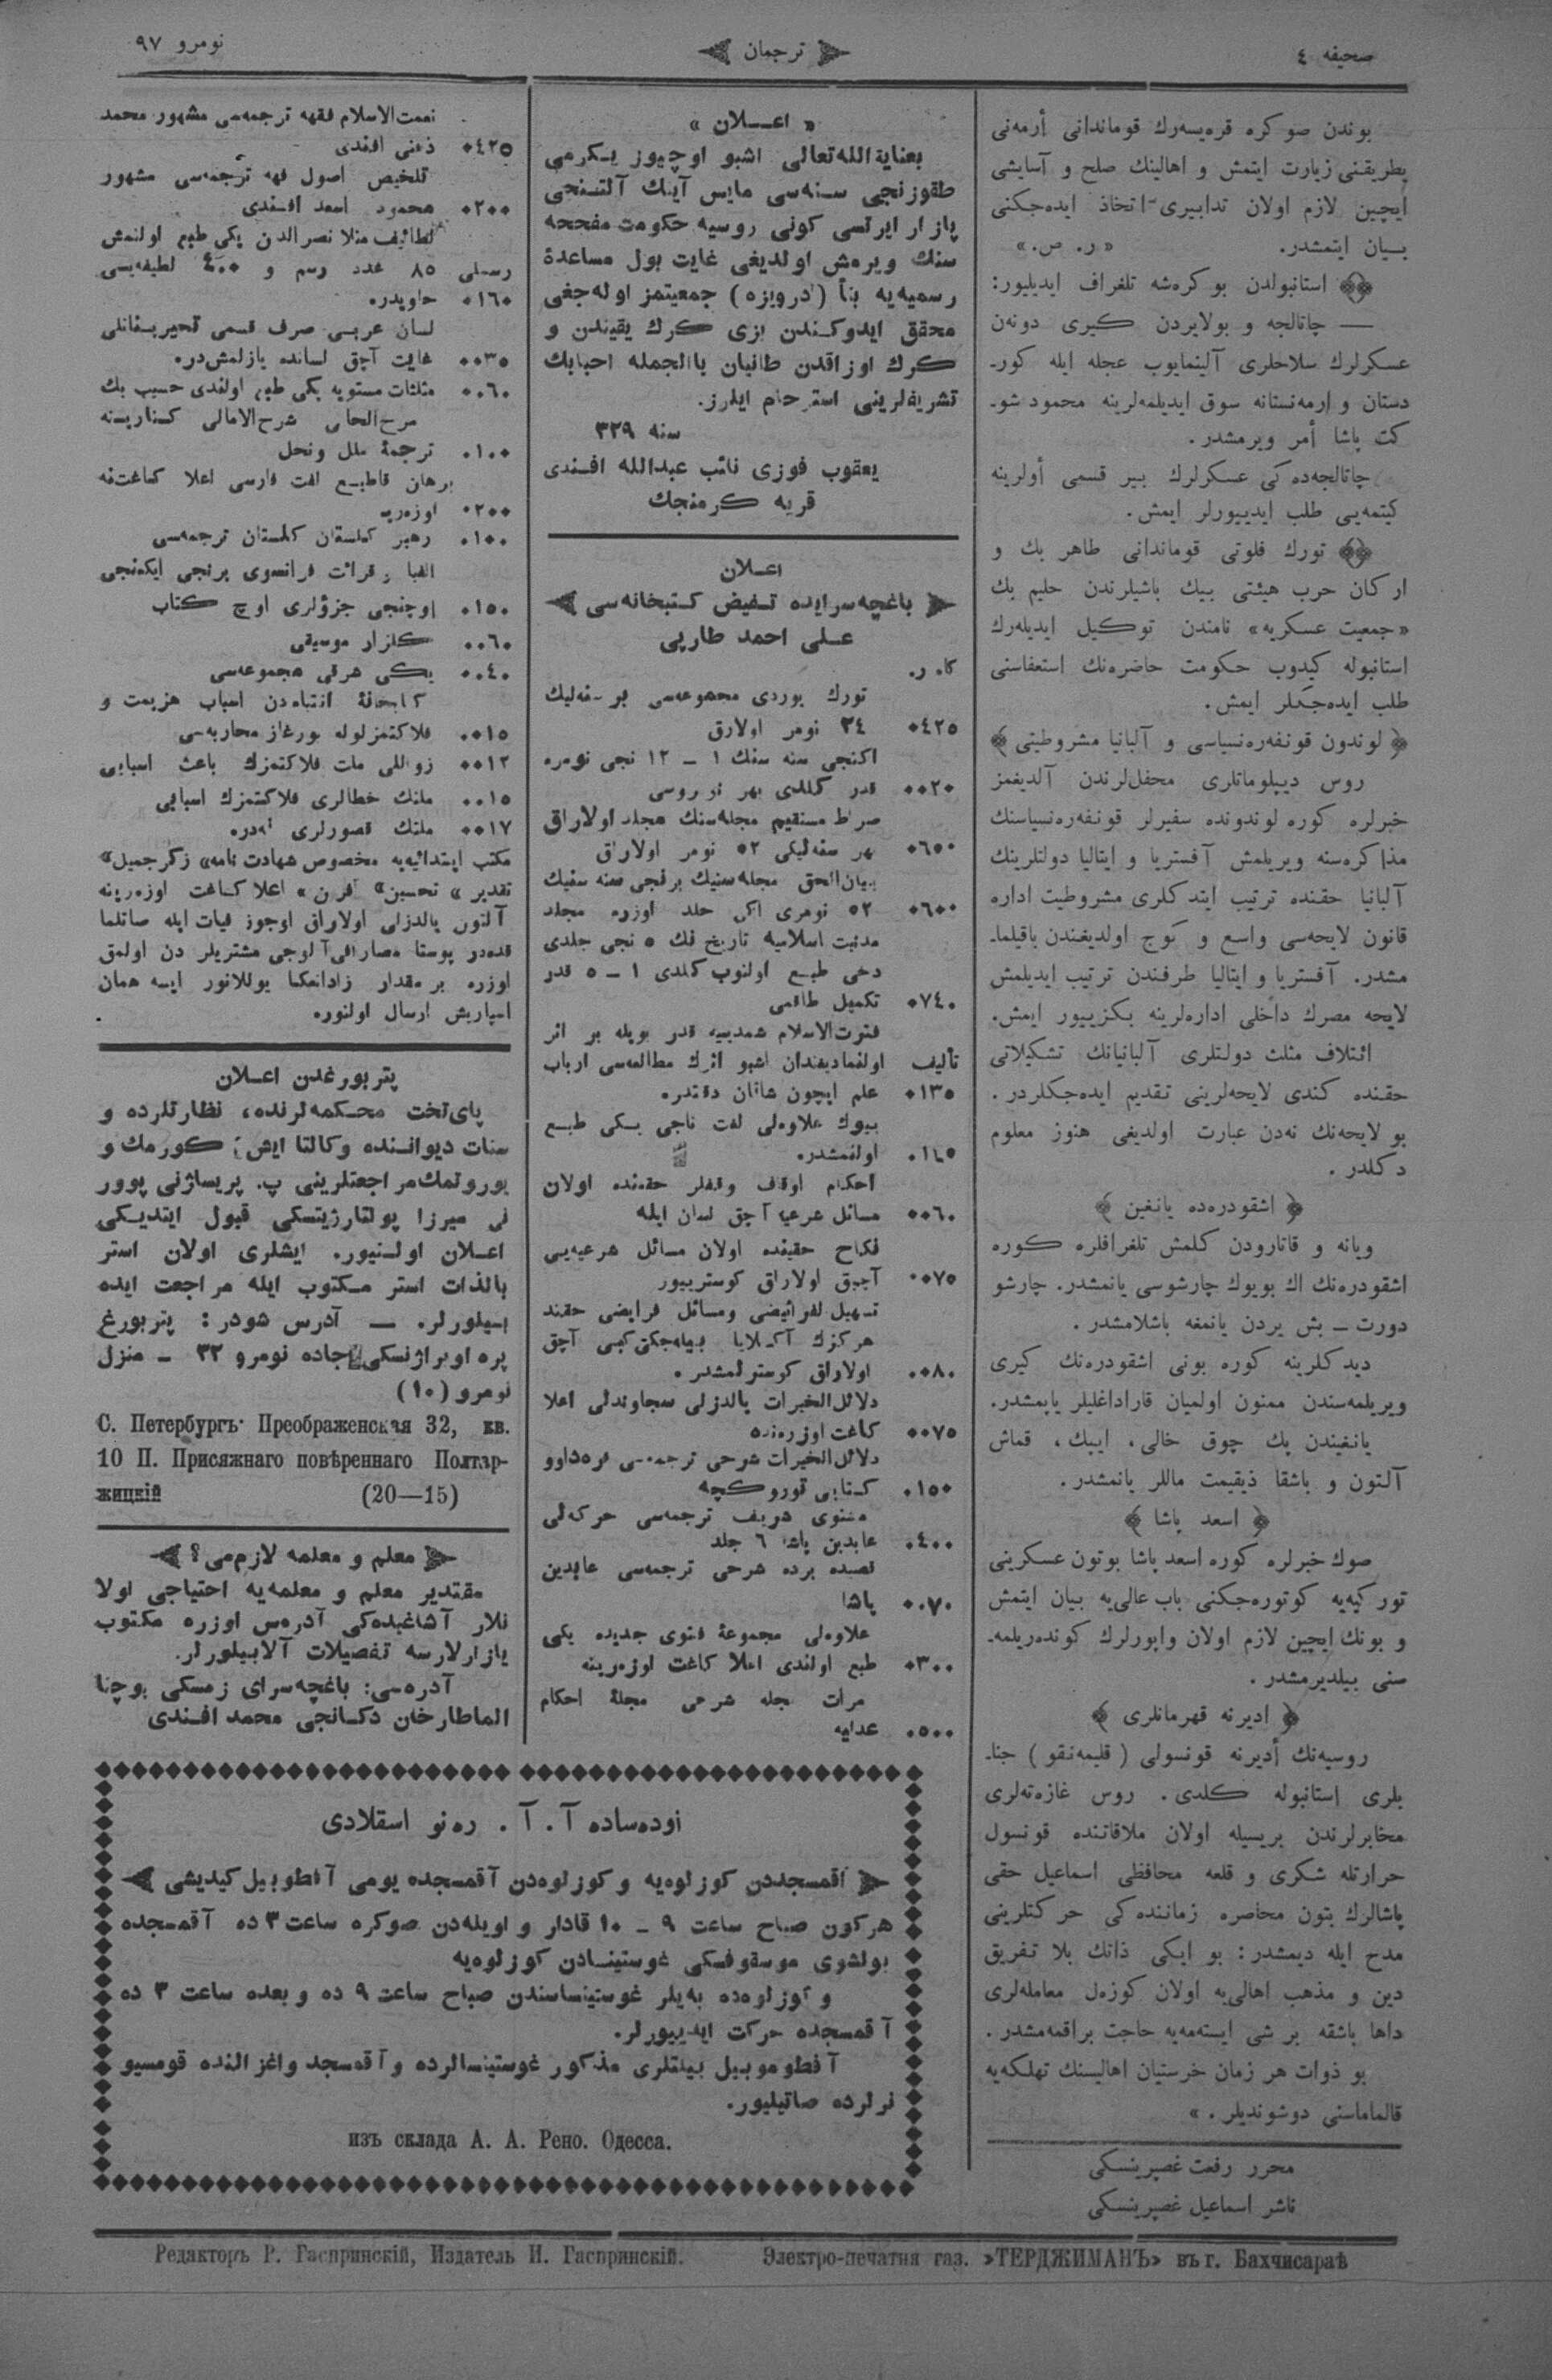 صحیفه ٤
ترجمان
نومرو ٩٧
بوندن صوكره قره‌سه‌رك قوماندانی أرمه‌نی
پطریقنی زیارت ایتمش و اهالینك صلح و آسایشی
ایچین لازم اولان تدابیری اتخاذ ایده‌جكنی
بیان ایتمشدر. «ر. ص.»
استانبولدن بو كره‌شه تلغراف ایدیلیور:
— چاتالجه و بولایردن كیری دونه‌ن
عسكرلرك سلاحلری آلینمایوب عجله ایله كور-
دستان و ارمه‌نستانه سوق ایدیلمه‌لرینه محمود شو-
كت پاشا أمر ویرمشدر.
چاتالجه‌ده كی عسكرلرك بیر قسمی أولرینه
كیتمه‌یی طلب ایدییورلر ایمش.
تورك فلوتی قوماندانی طاهر بك و
اركان حرب هیئتی بیك باشیلرندن حلیم بك
«جمعیت عسكریه» نامندن توكیل ایدیله‌رك
استانبوله كیدوب حكومت حاضره‌نك استعفاسنی
طلب ایده‌جكلر ایمش.
﴿ لوندون قونفه‌ره‌نسیاسی و آلبانیا مشروطیتی ﴾
روس دیپلوماتلری محفل‌لرندن آلدیغمز
خبرلره كوره لوندونده سفیرلر قونفه‌ره‌نسیاسنك
مذاكره‌سنه ویریلمش آفستریا و ایتالیا دولتلرینك
آلبانیا حقنده ترتیب ایتدكلری مشروطیت اداره
قانون لایحه‌سی واسع و كوج اولدیغندن باقیلما-
مشدر. آفستریا و ایتالیا طرفندن ترتیب ایدیلمش
لایحه مصرك داخلی اداره‌لرینه بكزییور ایمش.
ائتلاف مثلث دولتلری آلبانیانك تشكیلاتی
حقنده كندی لایحه‌لرینی تقدیم ایده‌جكلردر.
بو لایحه‌نك نه‌دن عبارت اولدیغی هنوز معلوم
دكلدر.
﴿ اشقودره‌ده یانغین ﴾
ویانه و قاتارودن كلمش تلغرافلره كوره
اشقودره‌نك اك بویوك چارشوسی یانمشدر. چارشو
دورت – بش یردن یانمغه باشلامشدر.
دیدكلرینه كوره بونی اشقودره‌نك كیری
ویریلمه‌سندن ممنون اولمیان قاراداغلیلر یاپمشدر.
یانغیندن پك چوق خالی، ایپك، قماش
آلتون و باشقا ذیقیمت ماللر یانمشدر.
﴿ اسعد پاشا ﴾
صوك خبرلره كوره اسعد پاشا بوتون عسكرینی
توركیه‌یه كوتوره‌جكنی باب عالی‌یه بیان ایتمش
و بونك ایچین لازم اولان واپورلرك كونده‌ریلمه-
سنی بیلدیرمشدر.
﴿ ادیرنه قهرمانلری ﴾
روسیه‌نك أدیرنه قونسولی (قلیمه‌نقو) جنا-
بلری إستانبوله كلدی. روس غازه‌ته‌لری
مخابرلرندن بریسیله اولان ملاقاتنده قونسول
حرارتله شكری و قلعه محافظی اسماعیل حقی
پاشالرك بتون محاصره زماننده‌كی حركتلرینی
مدح ایله دیمشدر: بو ایكی ذاتك بلا تفریق
دین و مذهب اهالی‌یه اولان كوزه‌ل معامله‌لری
داها باشقه بر شی ایسته‌مه‌یه حاجت براقمه‌مشدر.
بو ذوات هر زمان خرستیان اهالیسنك تهلكه‌یه
قالماماسنی دوشوندیلر. »
محرر رفعت غصپرینسكی
ناشر اسماعیل غصپرینسكی
« اعلان »
بعنایة الله تعالی اشبو اوچیوز یكرمی
طقوزنجی سنه‌سی مایس آینك آلتنجی
پازار ایرتسی كونی روسیه حكومت مفخحه
سنك ویرمش اولدیغی غایت بول مساعدهٔ
رسمیه‌یه بنأ (درویزه) جمعیتمز اوله‌جغی
محقق ایدوكندن بزی كرك یقیندن و
كرك اوزاقدن طانیان باالجمله احبابك
تشریفلرینی استرحام ایلرز.
سنه ٣٢٩
یعقوب فوزی نائب عبدالله افندی
قریه كرمنچك
اعلان
باغچه‌سرایده تفیض كتبخانه‌سی
علی احمد طارپی
كاه ر.
تورك یوردی مجموعه‌سی بر سنه‌لیك
٠٤٢٥ ٢٤ نومر اولارق
اكنجی سنه سنك ١ – ١٢ نجی نومره
٠٠٢٠ قدر كلدی بهر نومروسی
صراط مستقیم مجله‌سنك مجلد اولاراق
٠٦٥٠ بهر سنه‌لیكی ٥٢ نومر اولاراق
بیان‌الحق مجله‌سنیك برنجی سنه سنیك
٠٦٠٠ ٥٢ نومری اكی جلد اوزره مجلد
مدنیت اسلامیه تاریخ نك ٥ نجی جلدی
دخی طبع اولنوب كلدی ١ – ٥ قدر
٠٧٤٠ تكمیل طاقمی
فتوت‌الاسلام شمدییه قدر بویله بر اثر
تألیف اولنمادیغندان اشبو اثرك مطالعه‌سی ارباب
٠١٣٥ علم ایچون شانان دقتدر.
بیوك علاوه‌لی لغت ناجی یكی طبع
اولنمشدر.
احكام اوقاف وقفلر حقنده اولان
٠٠٦٠ مسائل شرعیه آچق لسان ایله
نكاح حقینده اولان مسائل شرعیه‌یی
٠٠٧٥ آچیق اولاراق كوسترییور
تسهیل لفرائیضی ومسائل فرایضی حقند
هركزك آكلایا بیله‌جكی كبی آچق
٠٠٨٠ اولاراق كوسترلمشدر.
دلائل‌الخیرات یالدزلی سجاوندلی اعلا
٠٠٧٥ كاغت اوزره‌نده
دلائل‌الخیرات شرحی ترجمه‌سی قره‌داوو
٠١٥٠ كتابی توروكچه
مثنوی شریف ترجمه‌سی حركه‌لی
٠٤٠٠ عابدین پاشا ٦ جلد
قصیده برده شرحی ترجمه‌سی عابدین
٠٠٧٠ پاشا
علاوه‌لی مجموعهٔ فتوی جدیده یكی
٠٣٠٠ طبع اولندی اعلا كاغت اوزه‌رینه
مرأت مجله شرحی مجلهٔ احكام
٠٥٠٠ عدلیه
نعمت‌الاسلام فقهه ترجمه‌سی مشهور محمد
٠٤٢٥ ذهنی افندی
تلخیص اصول فقه ترجمه‌سی مشهور
٠٢٠٠ محمود اسعد افندی
لطائیف منلا نصرالدن یكی طبع اولنمش
رسملی ٨٥ عدد رسم و ٤٠٠ لطیفه‌یسی
٠١٦٠ حاویدر.
لسان عربی صرف قسمی تحیر بستانلی
٠٠٣٥ غایت آچق لسانده یازلمش‌در.
٠٠٦٠ مثلثات مستویه یكی طبع اولندی حسیب بك
شرح‌الامالی كناریسنه
٠١٠٠ ترجمهٔ ملل ونحل
برهان قاطیع لغت فارسی اعلا كماغت‌نه
٠٢٠٠ اوزه‌ریه
٠١٠٠ رهبر كلستان كلستان ترجمه‌سی
الفبا و قرائت فرانسوی برنجی ایكنجی
٠١٥٠ اوچنجی جزؤلری اوچ كتاب
٠٠٦٠ كلزار موسیقی
٠٠٤٠ یكی شرقی مجموعه‌سی
كتابخانهٔ انتباه‌دن اسباب هزیمت و
٠٠١٥ فلاكتمز لوله بورغاز محاربه‌سی
٠٠١٢ زواللی ملت فلاكتمزك باعث اسبابی
٠٠١٥ ملتك خطالری فلاكتمزك اسبابی
٠٠١٧ ملتك قصورلری نه‌در.
مكتب ایتدائیه‌یه مخصوص شهادت نامه» زكر جمیل»
تقدیر » تحسین» آفرن» اعلا كاغت اوزه‌رینه
آلتون یالدزلی اولاراق اوجوز فیات ایله صاتلما
قده‌در پوستا مصارافی آلوجی مشتریلر دن اولمق
اوزره بر مقدار زاداتمكا یوللانور ایسه همان
اسپاریش ارسال اولنور.
پتربورغدن اعلان
پای‌تخت محكمه‌لرنده، نظارتلرده و
سنات دیوانـنده وكالتا ایش كورمك و
یوروتمك مراجعتلرینی پ. پریساژنی پوور
نی میرزا پولتارژیتسكی قبول ایتدیكی
اعلان اولنیور. ایشلری اولان استر
بالذات استر مكتوب ایله مراجعت ایده
بیلورلر. — آدرس شودر: پتربورغ
پره اوبراژنسكی جاده نومرو ٣٢ – منزل
نومرو (١٠)
С. Петербургъ Преображенская 32, кв.
10 П. Присяжнаго повѣреннаго Полтар-
жицкій (20—15)
معلم و معلمه لازم‌می؟
مقتدیر معلم و معلمه‌یه احتیاجی اولا
نلار آشاغیده‌كی آدره‌س اوزره مكتوب
یازارلارسه تفصیلات آلابیلورلر.
آدره‌سی: باغچه‌سرای زمسكی پوچتا
الماطارخان دكانجی محمد افندی
اوده‌ساده آ. آ. ره‌نو اسقلادی
آقمسجددن كوزلوه‌یه و كوزلوه‌دن آقمسجده یومی آفطوبیل كیدیشی
هركون صباح ساعت ٩ – ١٠ قادار و اویله‌دن صوكره ساعت ٣ ده آقمسجده
بولشوی موسقوفسكی غوستینسادن كوزلوه‌یه
و كوزلوه‌ده به‌یلر غوستینساسندن صباح ساعت ٩ ده و بعده ساعت ٣ ده
آقمسجده حركت ایدییورلر.
آفطوموبیل بیلتلری مذكور غوستینسالرده و آقمسجد واغزالنده قومسیو
نرلرده صاتیلیور.
изъ склада А. А. Рено. Одесса.
Редакторъ Р. Гаспринскій, Издатель И. Гаспринскій.
Электро-печатня газ. »ТЕРДЖИМАНЪ« въ г. Бахчисараѣ